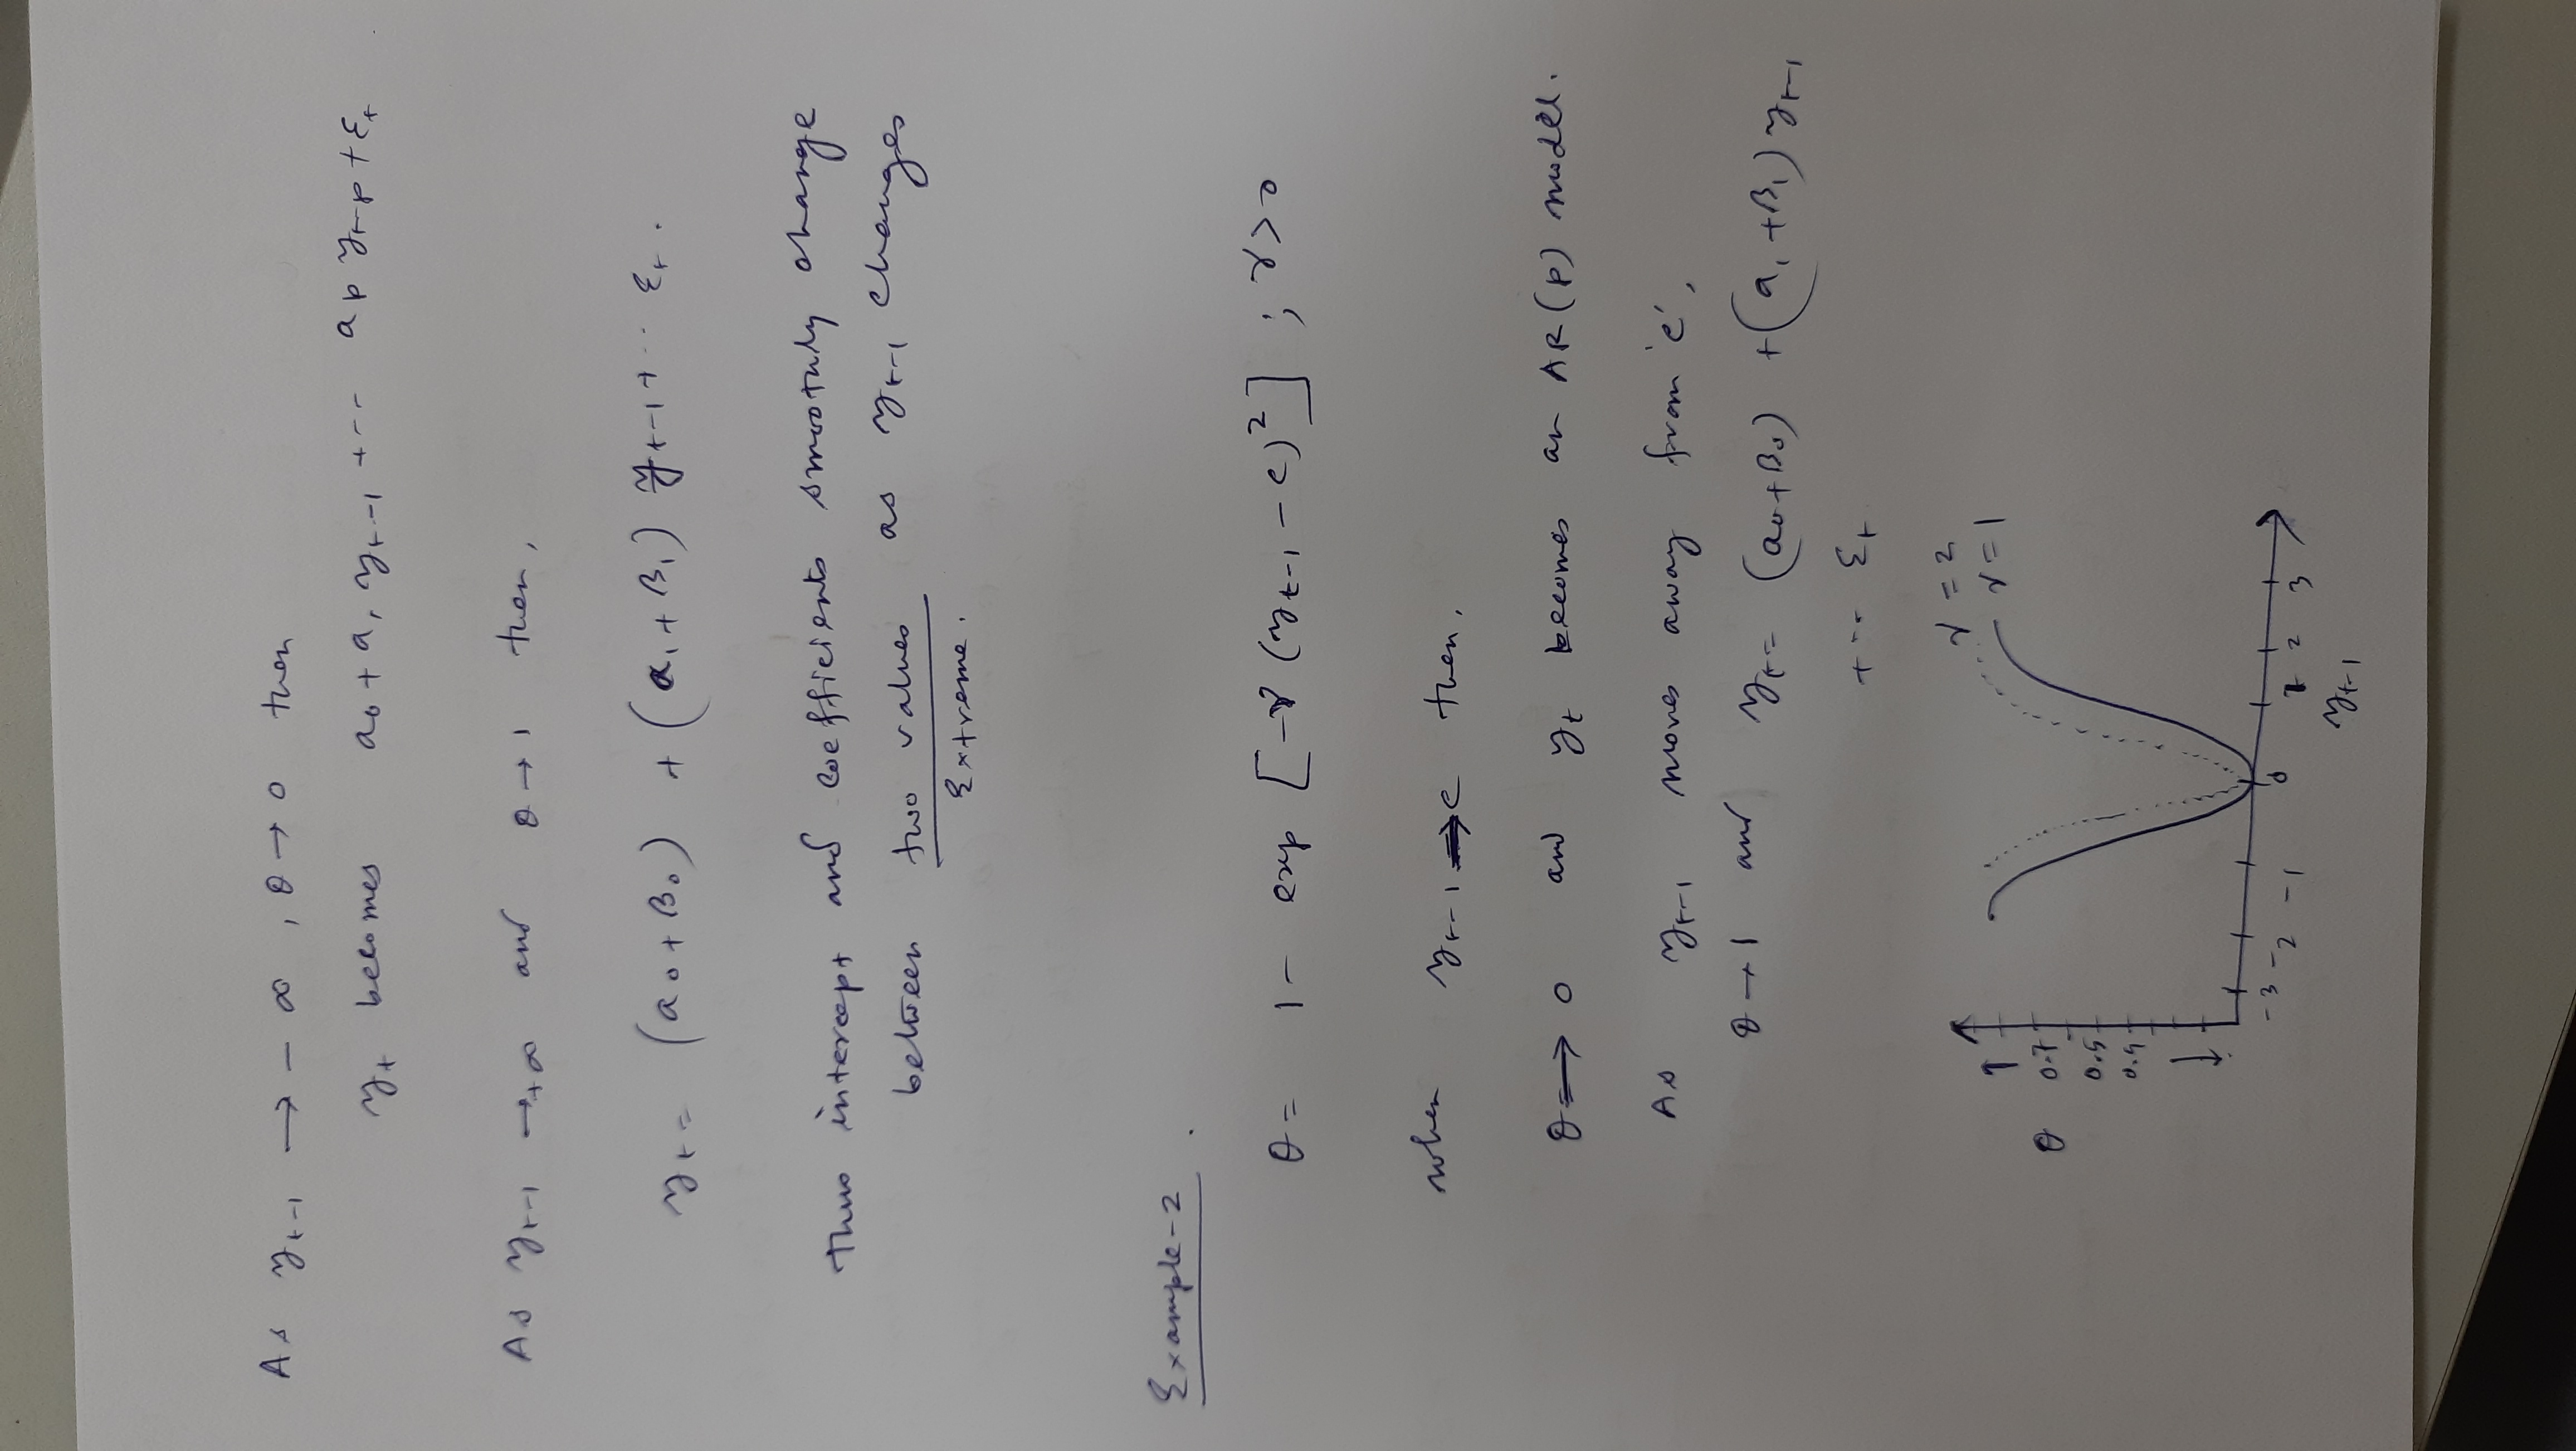 As y_{t-1} → - ∞ , θ → 0 then
y_t becomes a_0 + a_1 y_{t-1} + -- a_p y_{t-p} + ε_t
As y_{t-1} → +∞ and θ → 1 then,
y_t = (a_0 + β_0) + (α_1 + β_1) y_{t-1} + -- ε_t .
Thus intercept and coefficients smoothly change
between two values as y_{t-1} changes
Extreme.
Example-2 .
θ = 1 - exp [-γ (y_{t-1} - c)^2] ; γ>0
when y_{t-1} → c then,
θ → 0 and y_t becomes an AR(p) model.
As y_{t-1} moves away from 'c',
θ → 1 and y_t = (a_0+β_0) + (a_1 + β_1) y_{t-1}
+ --- ε_t
γ = 2
γ = 1
θ 0.7
0.5
0.4
-3 -2 -1 0 1 2 3
y_{t-1}